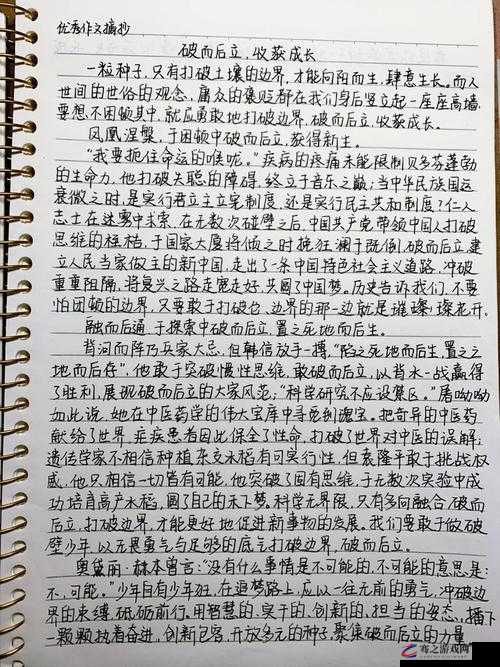 优秀作文摘抄
破而后立,收获成长
一粒种子,只有打破土壤的边界,才能向阳而生,肆意生长。而人
世间的世俗的观念,庸众的集贬都在我们身后竖立起一座座高墙,
要想不困顿其中,就应勇敢地打破边界,破而后立,收获成长。
凤凰涅槃,于困顿中破而后立,获得新生。
"我要扼住命运的喉咙。"疾病的疼痛未能限制贝多芬蓬勃
的生命力,他打破失聪的障碍,终立于音乐之巅;当中华民族国运
衰微之时,是实行君立主立宪制度,还是实行民主共和制度?仁人
志士在迷雾中求索,在无数次碰壁之后,中国共产党带领中国人打破
思维的桎梏,于国家大厦将倾之时挽狂澜于既倒,破而后立,建
立人民当家做主的新中国,走出了一条中国特色社会主义道路,冲破
重重阻隔,将复兴之路走宽走好,共圆了中国梦。历史告诉我们,不要
怕困顿的边界,只要敢于打破它,边界的那一边就是璀璨璨花开。
融而后通,于探索中破而后立,置之死地而后生。
背河而阵乃兵家大忌,但韩信放手一搏,"陷之死地而后生,置之亡
地而后存",他敢于突破惯性思维,敢破而后立,以背水一战赢得
了胜利,展现破而后立的大家风范;"科学研究不应设禁区。"屠呦呦
如此说,她在中医药学的伟大宝库中寻觅到瑰宝。把奇异的中医药
献给了世界,疟疾患者因此保全了性命,打破了世界对中医的误解;
遗传学家不相信种植杂交水稻有可实行性,但袁隆平敢于挑战权
威,他只相信一切皆有可能,他突破了固有思维,于无数次实验中成
功培育高产水稻,圆了自己的禾下梦。科学无界限,只有多向融合,破而
后立,打破边界,才能更好地促进新事物的发展,我们要敢于做破
壁少年,以无畏勇气与足够的底气打破边界,破而后立。
奥黛丽·赫本曾言:"没有什么事情是不可能的,不可能的意思是:
不,可能。"少年自有少年狂,在追梦路上,应以一往无前的勇气,冲破边
界的束缚,砥砺前行,用智慧的,实干的,创新的,担当的姿态,播下
一颗颗执着奋进,创新包容,开放多元的种子,聚集破而后立的力量
骞之游戏网